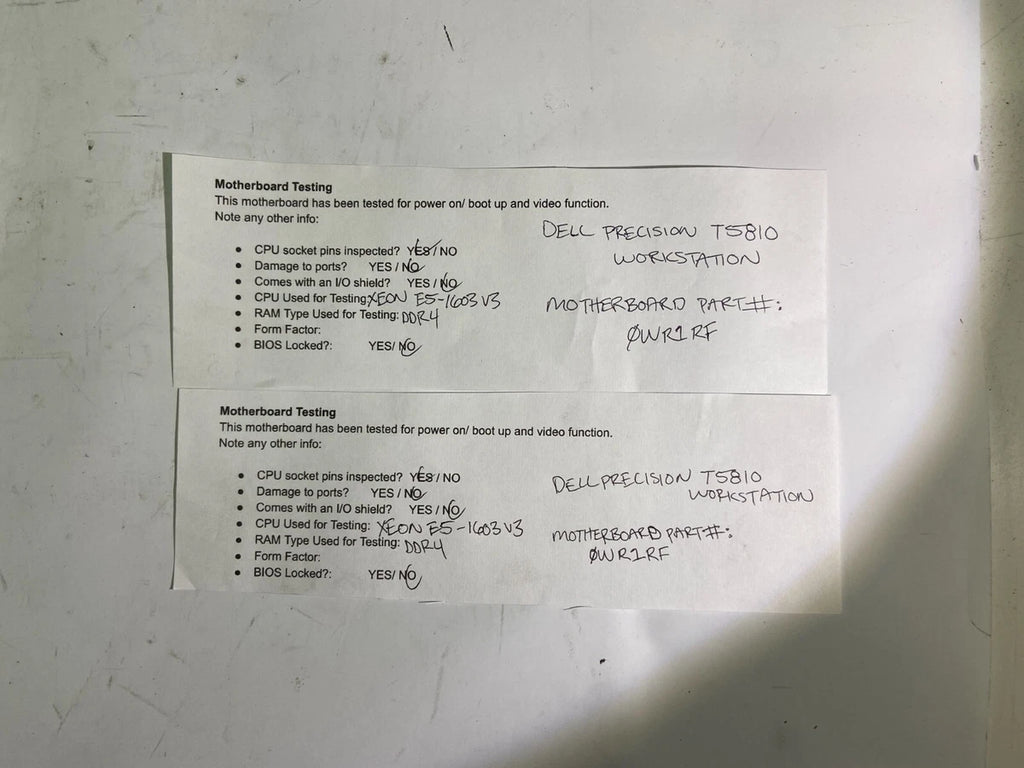 Motherboard Testing
This motherboard has been tested for power on/ boot up and video function.
Note any other info:
DELL PRECISION T5810
WORKSTATION
• CPU socket pins inspected? YES / NO
• Damage to ports? YES / NO
• Comes with an I/O shield? YES / NO
• CPU Used for Testing: XEON E5-1603 V3
• RAM Type Used for Testing: DDR4
• Form Factor:
• BIOS Locked?: YES/ NO
MOTHERBOARD PART#:
0WR1RF
Motherboard Testing
This motherboard has been tested for power on/ boot up and video function.
Note any other info:
• CPU socket pins inspected? YES / NO
• Damage to ports? YES / NO
• Comes with an I/O shield? YES / NO
• CPU Used for Testing: XEON E5-1603 V3
• RAM Type Used for Testing: DDR4
• Form Factor:
• BIOS Locked?: YES/ NO
DELL PRECISION T5810
WORKSTATION
MOTHERBOARD PART#:
0WR1RF